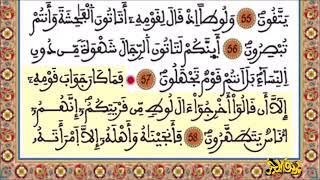 يَتَّقُونَ 55 وَلُوطًا اِذْ قَالَ لِقَوْمِهِۦٓ أَتَاتُونَ اَ۬لْفَٰحِشَةَ وَأَنتُمْ
تُبْصِرُونَ 56 أَئِنَّكُمْ لَتَاتُونَ اَ۬لرِّجَالَ شَهْوَةً مِّن دُونِ
اِ۬لنِّسَآءِ بَلَ اَنتُمْ قَوْمٌ تَجْهَلُونَ 57 فَمَا كَانَ جَوَابَ قَوْمِهِۦٓ
إِلَّآ أَن قَالُوٓاْ أَخْرِجُوٓاْ ءَالَ لُوطٍ مِّن قَرْيَتِكُمُۥٓ إِنَّهُمُۥٓ
أُنَاسٌ يَتَطَهَّرُونَ 58 فَأَنجَيْنَٰهُ وَأَهْلَهُۥٓ إِلَّا اَ۪مْرَأَتَهُۥ